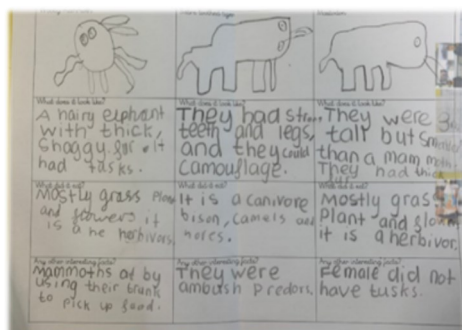 What does it look like?
A hairy elephant
with thick,
Shaggy fur. it
had tusks.
What does it look like?
They had
teeth and legs,
and they could
camouflage.
What does it look like?
They were
tall but
than a mam moth.
They had thick
What did it eat?
Mostly grass
and flowers it
is a he herbivors.
What did it eat?
It is a canivore
bison, camels and
hores.
What did it eat?
Mostly grass
Plant and
it is a herbivor.
Any other interesting facts?
Mammoths at by
using their trunk
to pick up food.
Any other interesting facts?
They were
ambush predors.
Any other interesting facts?
Female did not
have tusks.